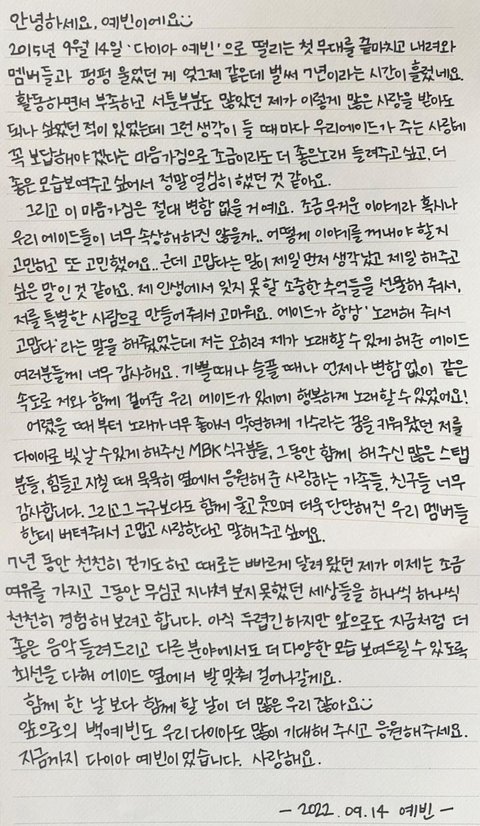 안녕하세요, 예빈이에요☺
2015년 9월 14일 '다이아 예빈'으로 떨리는 첫 무대를 끝마치고 내려와
멤버들과 펑펑 울었던 게 엊그제 같은데 벌써 7년이라는 시간이 흘렀네요.
활동하면서 부족하고 서툰부분도 많았던 제가 이렇게 많은 사랑을 받아도
되나 싶었던 적이 있었는데 그런 생각이 들 때마다 우리에이드가 주는 사랑에
꼭 보답해야겠다는 마음가짐으로 조금이라도 더 좋은노래 들려주고싶고, 더
좋은 모습보여주고 싶어서 정말 열심히 했던 것 같아요.
그리고 이 마음가짐은 절대 변함 없을 거예요. 조금 무거운 이야기라 혹시나
우리 에이드들이 너무 속상해하진 않을까.. 어떻게 이야기를 꺼내야 할지
고민하고 또 고민했어요.. 근데 고맙다는 말이 제일 먼저 생각났고 제일 해주고
싶은 말인 것 같아요. 제 인생에서 잊지 못할 소중한 추억들을 선물해 줘서,
저를 특별한 사람으로 만들어줘서 고마워요. 에이드가 항상 '노래해 줘서
고맙다'라는 말을 해줬었는데 저는 오히려 제가 노래할 수 있게 해준 에이드
여러분들께 너무 감사해요. 기쁠때나 슬플 때나 언제나 변함 없이 같은
속도로 저와 함께 걸어준 우리 에이드가 있기에 행복하게 노래할 수 있었어요!
어렸을 때부터 노래가 너무 좋아서 막연하게 가수라는 꿈을 키워왔던 저를
다이아로 빛날 수 있게 해주신 MBK 식구분들, 그동안 함께 해주신 많은 스탭
분들, 힘들고 지칠 때 묵묵히 옆에서 응원해 준 사랑하는 가족들, 친구들 너무
감사합니다. 그리고 그 누구보다도 함께 울고 웃으며 더욱 단단해진 우리 멤버들
한테 버텨줘서 고맙고 사랑한다고 말해주고 싶어요.
7년 동안 천천히 걷기도 하고 때로는 빠르게 달려 왔던 제가 이제는 조금
여유를 가지고 그동안 무심코 지나쳐 보지 못했던 세상들을 하나씩 하나씩
천천히 경험해 보려고 합니다. 아직 두렵긴 하지만 앞으로도 지금처럼 더
좋은 음악 들려드리고 다른 분야에서도 더 다양한 모습 보여드릴 수 있도록
최선을 다해 에이드 옆에서 발 맞춰 걸어나갈게요.
함께 한 날 보다 함께 할 날이 더 많은 우리 잖아요☺
앞으로의 백예빈도 우리 다이아도 많이 기대해 주시고 응원해주세요.
지금까지 다이아 예빈이었습니다. 사랑해요.
- 2022. 09. 14 예빈 -